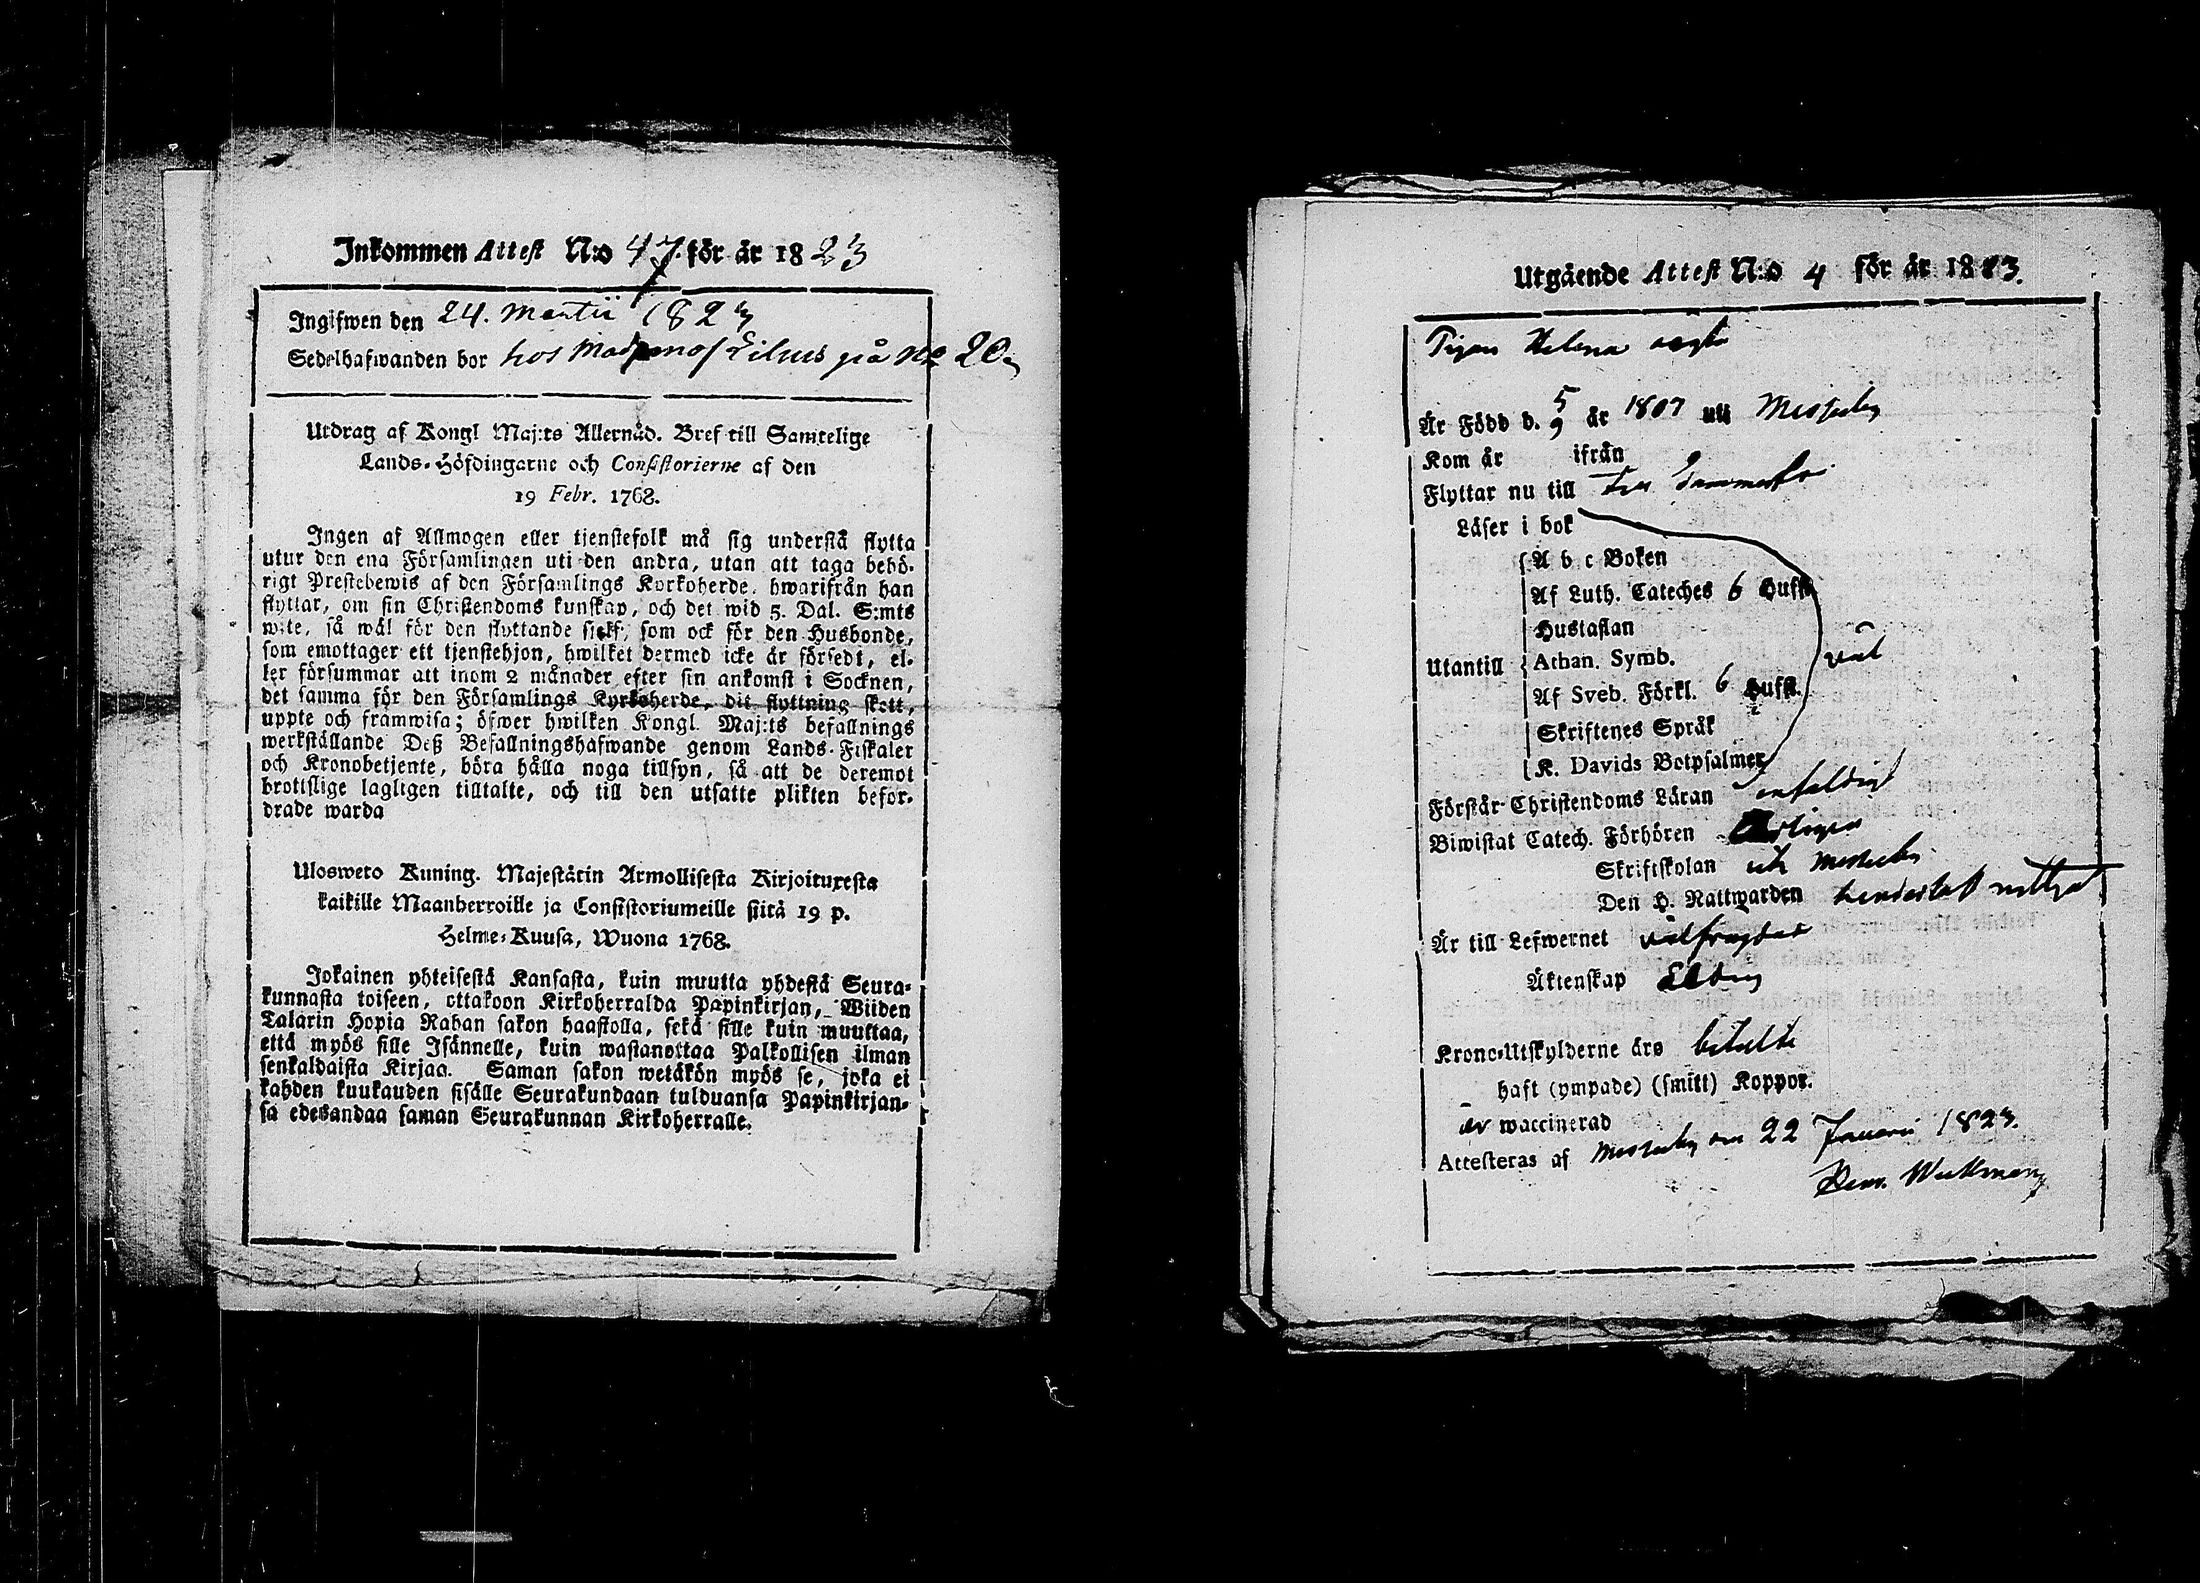 Inkommen Attest N:o 47. för år 1823
Ingifwen den 24. Martii 1823
Sedelhafwanden bor hos på No 20.
Utdrag af Kongl Maj:ts Allernåd. Bref till Samtelige
Lands-Höfdingarne och Consistorierne af den
19 Febr. 1768.
Ingen af Allmogen eller tjenstefolk må sig understå flytta
utur den ena Församlingen uti den andra, utan att taga behö-
rigt Prestebewis af den Församlings Kyrkoherde, hwarifrån han
flyttar, om sin Christendoms kunskap, och det wid 5. Dal. S:mts
wite, så wäl för den flyttande sielf, som ock för den Husbonde,
som emottager ett tjenstehjon, hwilket dermed icke är försedt, el-
ler försummar att inom 2 månader efter sin ankomst i Socknen,
det samma för den Församlings Kyrkoherde, dit flyttning skett,
uppte och framwisa; öfwer hwilken Kongl. Maj:ts befallnings
werkställande Deß Befallningshafwande genom Lands-Fiskaler
och Kronobetjente, böra hålla noga tillsyn, så att de deremot
brottslige lagligen tilltalte, och till den utsatte plikten befor-
drade warda
Ulosweto Kuning. Majestätin Armollisesta Kirjoituxesta
kaikille Maanherroille ja Consistoriumeille siitä 19 p.
Helme-Kuusa, Wuona 1768.
Jokainen yhteisestä Kansasta, kuin muutta yhdestä Seura-
kunnasta toiseen, ottakoon Kirkoherralda Papinkirjan, Wiiden
Talarin Hopia Rahan sakon haastolla, sekä sille kuin muuttaa,
että myös sille Isännelle, kuin wastanottaa Palkollisen ilman
senkaldaista Kirjaa. Saman sakon wetäkön myös se, joka ei
kahden kuukauden sisälle Seurakundaan tulduansa Papinkirjan-
sa edesandaa saman Seurakunnan Kirkoherralle.
Utgående Attest N:o 4 för år 1823.
Pigan Helena
Är Född d. 5/9 år 1807 uti Messuby
Kom år ifrån
Flyttar nu till Tammerfors
Läser i bok
A b c Boken
Af Luth. Cateches 6 Hufst.
Hustaflan
Utantill Athan. Symb. väl
Af Sveb. Förkl. 6 Hufst.
Skriftenes Språk
K. Davids Botpsalmer
Förstår Christendoms Läran enfaldigt
Biwistat Catech. Förhören årligen
Skriftskolan uti Messuby
Den H. Nattwarden nyttjat
Är till Lefwernet välfrägdad
Äktenskap Ledig
Krono-Utskylderne äro betalte
haft (ympade) (smitt) Koppor.
är waccinerad
Attesteras af Messuby den 22 Januarii 1823.
Wickman